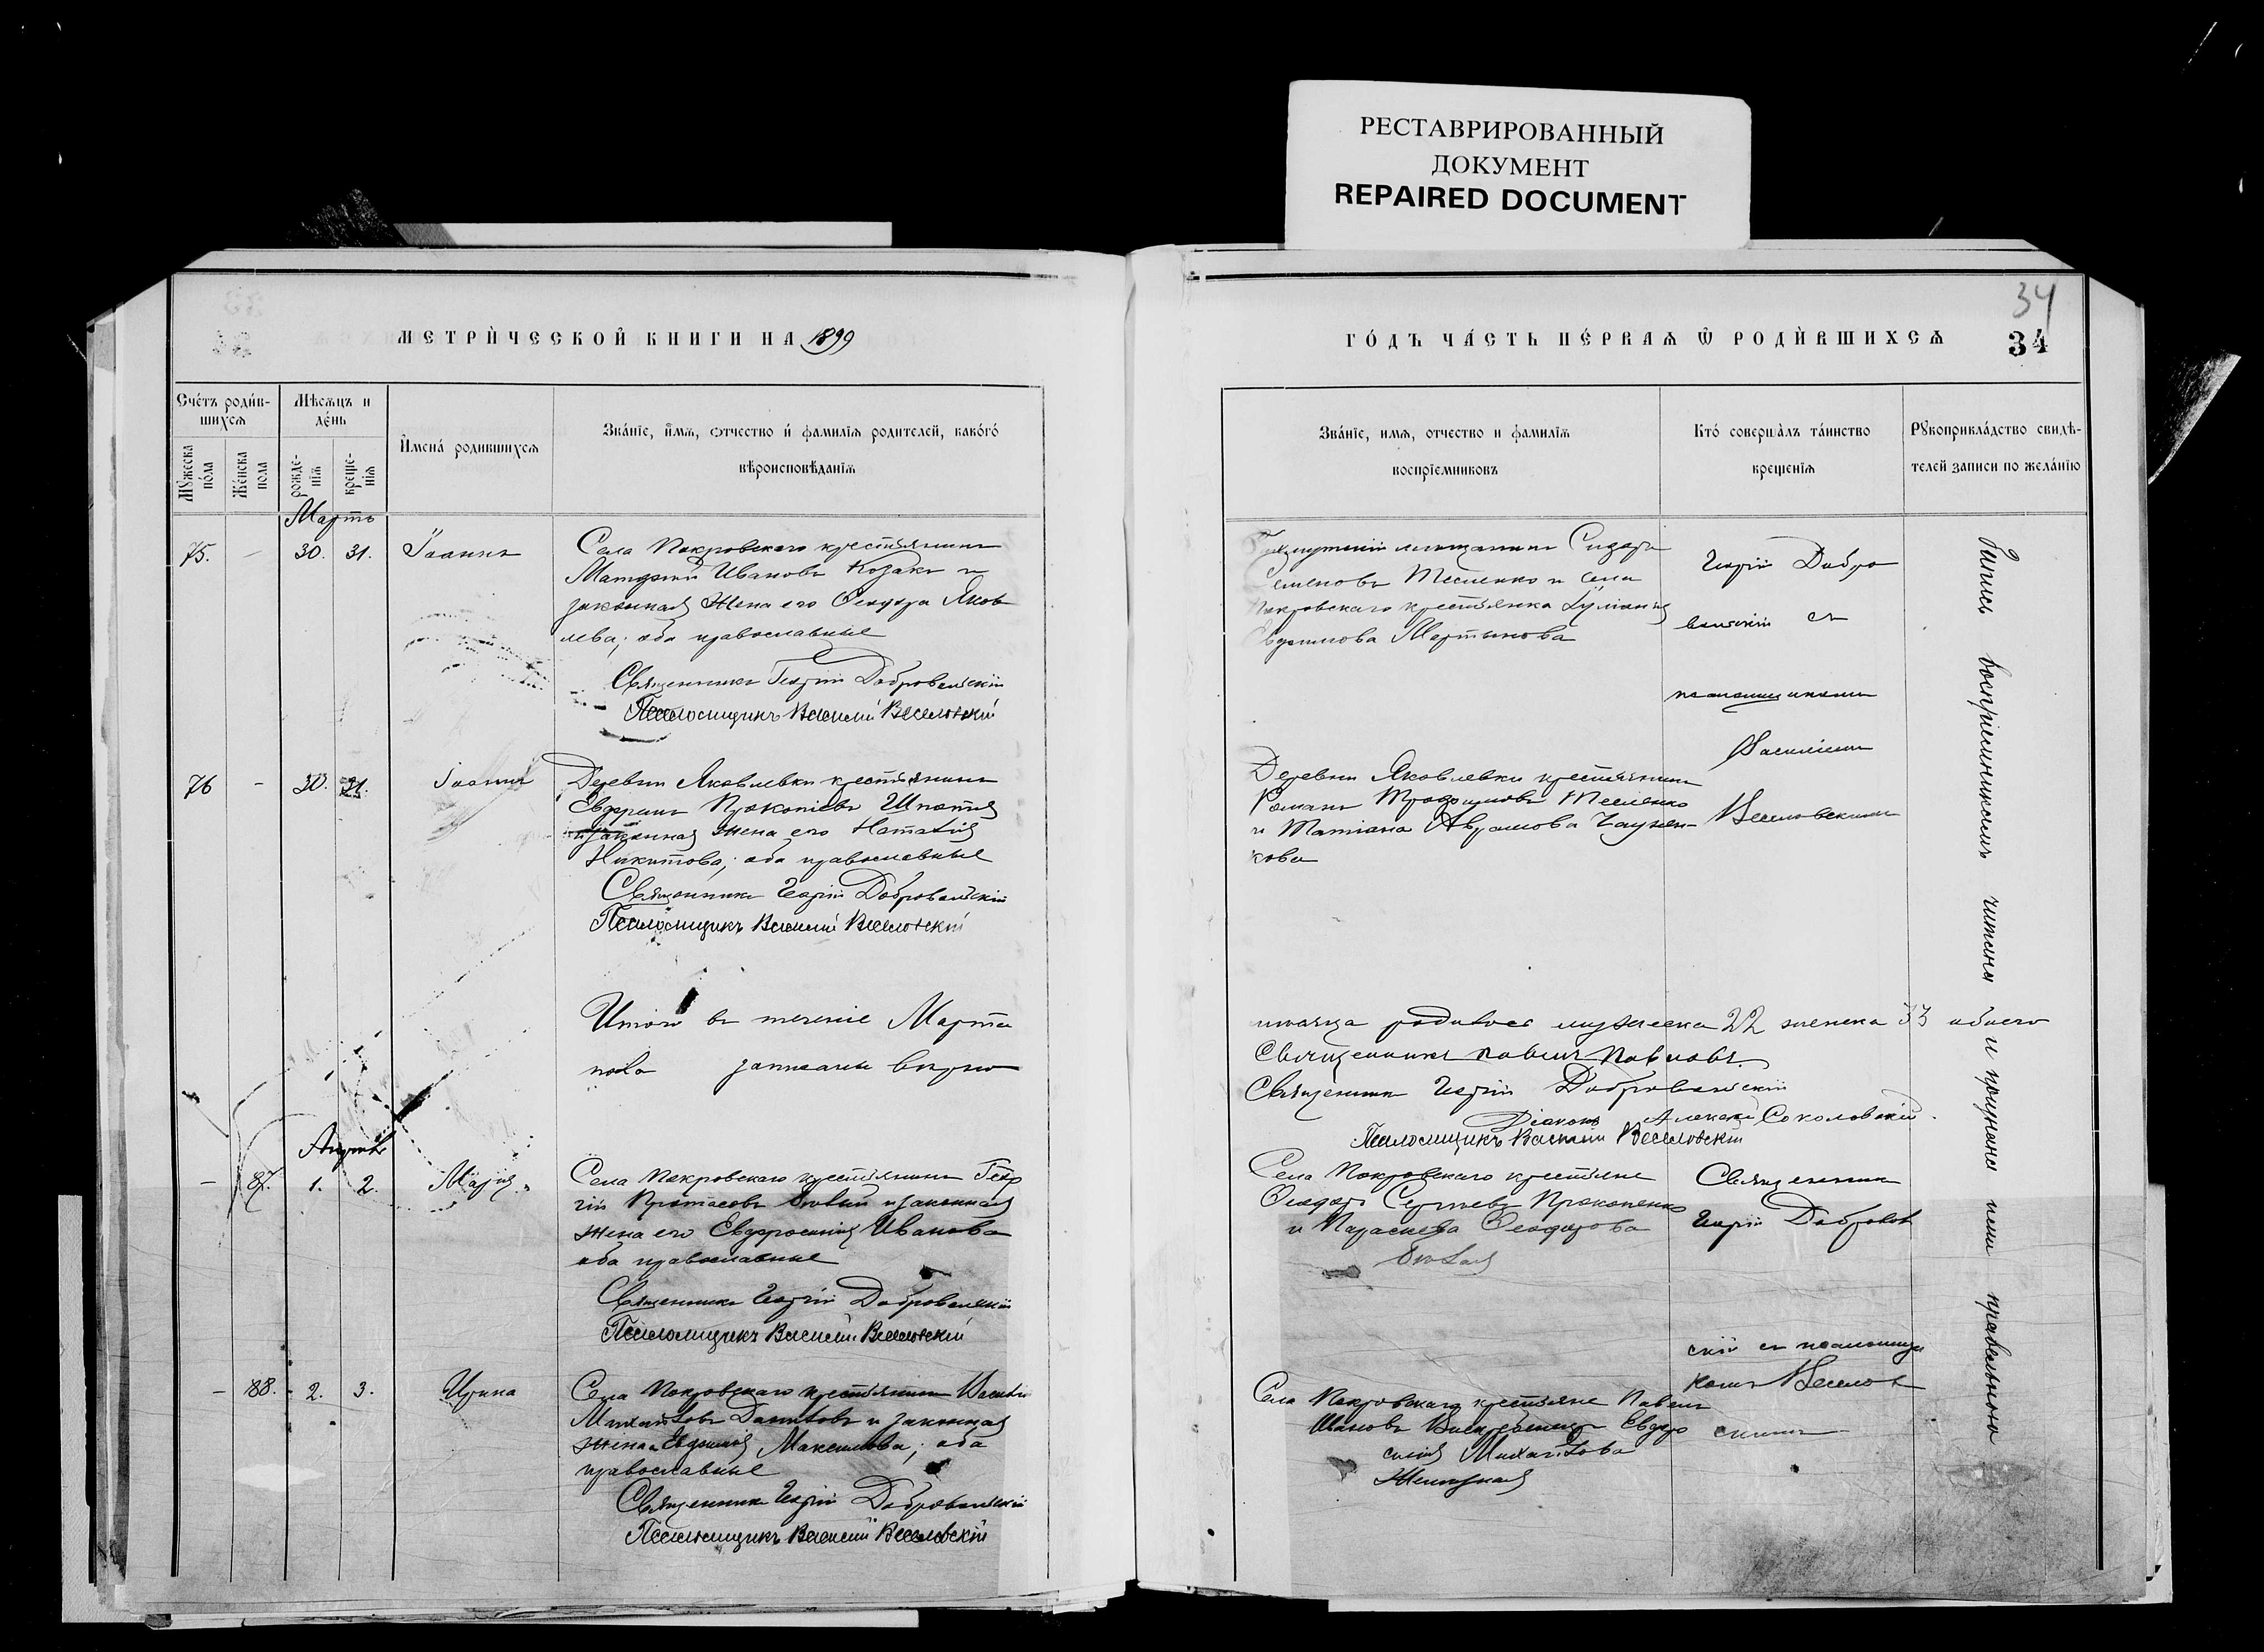 РЕСТАВРИРОВАННЫЙ
ДОКУМЕНТ
REPAIRED DOCUMENT
МЕТРИ́ЧЕСКОЙ КНИГИ НА 1899
Сче́тъ роди́в-
шихсѧ
Мꙋжеска
по́ла
Же́нска
пола
Мѣсѧцъ и
де́нь
рожде-
нїѧ
креще-
нїѧ
И҆мена́ родившихсѧ
Зва́нїе, и҆́мѧ, отчество и҆ фамилїѧ родителей, како́гѡ
вѣроисповѣданїѧ
Мартъ
75. - 30. 31. Іоаннъ
Села Покровскаго крестьянинъ
Матфей Ивановъ Козакъ и
законная жена его Ѳеодора Яков
лева; оба православные
Священникъ Георгій Добровольскій
Псаломщикъ Василій Веселовскій
76 - 30. 31. Іоаннъ
Деревни Яковлевки крестьянинъ
Евфримъ Прокопіевъ Ипатія
и законная жена его Наталія
Никитова; оба православные
Священникъ Георгій Добровольскій
Псаломщикъ Василій Веселовскій
Итого въ теченіе Марта
пола записаны вѣрно
Апрѣль
- 87. 1. 2. Марія
Села Покровскаго крестьянинъ Геор
гій Протасовъ и законная
жена его Евфросинія Иванова
оба православные
Священникъ Георгій Добровольскій
Псаломщикъ Василій Веселовскій
- 88. 2. 3. Ирина
Села Покровскаго крестьянинъ Василій
Михайловъ Даниловъ и законная
жена Евдокія Максимова; оба
православные
Священникъ Георгій Добровольскій
Псаломщикъ Василій Веселовскій
34
ГО́ДЪ ЧА́СТЬ ПЕ́РВАѦ Ѽ РОДИ́ВШИХСѦ
34
Зва́нїе, имѧ, отчество и фамилїѧ
воспрїемниковъ
Кто́ соверша̀лъ та́инство
крещенїѧ
Рꙋкоприкла́дство свидѣ-
телей записи по жела́нїю
мѣщанинъ Сидоръ
Семеновъ Тесленко и села
Покровскаго крестьянка Іуліанія
Евфимова Мартынова
Георгій Добро
вольскій съ
псаломщикомъ
Василіемъ
Веселовскимъ
Деревни Яковлевки крестьянинъ
Романъ Трофимовъ Тесленко
и Татіана Аврамова
кова
мѣсяца родилось мужеска 22 женска 33 обоего
Священникъ Павелъ Павловъ.
Священникъ Георгій Добровольскій
Діаконъ Алексѣй Соколовскій.
Псаломщикъ Василій Веселовскій
Села Покровскаго крестьяне
Ѳеодоръ Сергіевъ Прокопенко
и Параскева Ѳеодорова
Священникъ
Георгій Доброволь
скій съ псаломщи
комъ Веселов
скимъ
Села Покровскаго крестьяне Павелъ
Ивановъ Евфро
синія Михайлова
Запись воспріемникамъ читана и признана ими правильною